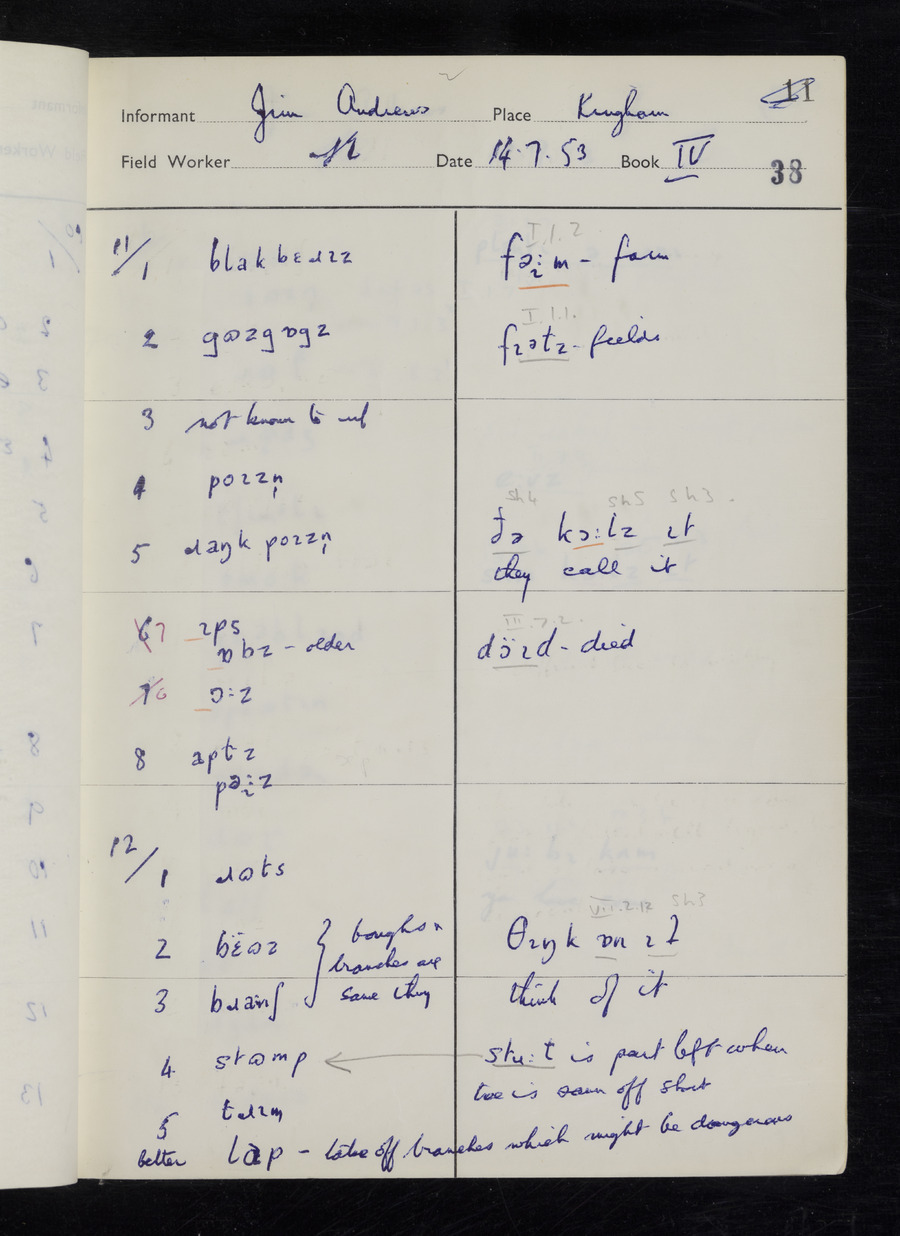 Informant Jim Andrews Place Kingham 11
Field Worker Date 14.7.53 Book IV 38
11/1 blakbɛɹɪz I.1.2 fəɪ̣m – farm
2 gɷzgɒgz I.1.1. fɪətz – fields
3 not known to inf
4 pɒɪzn̩
5 ɹaŋk pɒɪzn̩ sh4 sh5 sh3.
ðə kɔ:lz ɪt
they call it
7 ɪps III.7.2.
ɒbz – older dɔ̈ɪd – died
6 ɔ:z
8 aptz
pəɪ̣z
12/1 ɹɷts
2 bɛ̈ɷz boughs & VII.2.12 sh3
branches are θɪŋk ɒn ɪt
3 bɹanʃ same thing think of it
4 stɷmp stu:l is part left when
tree is sawn off short
5 tɹɪm
better lɒp – take off branches which might be dangerous